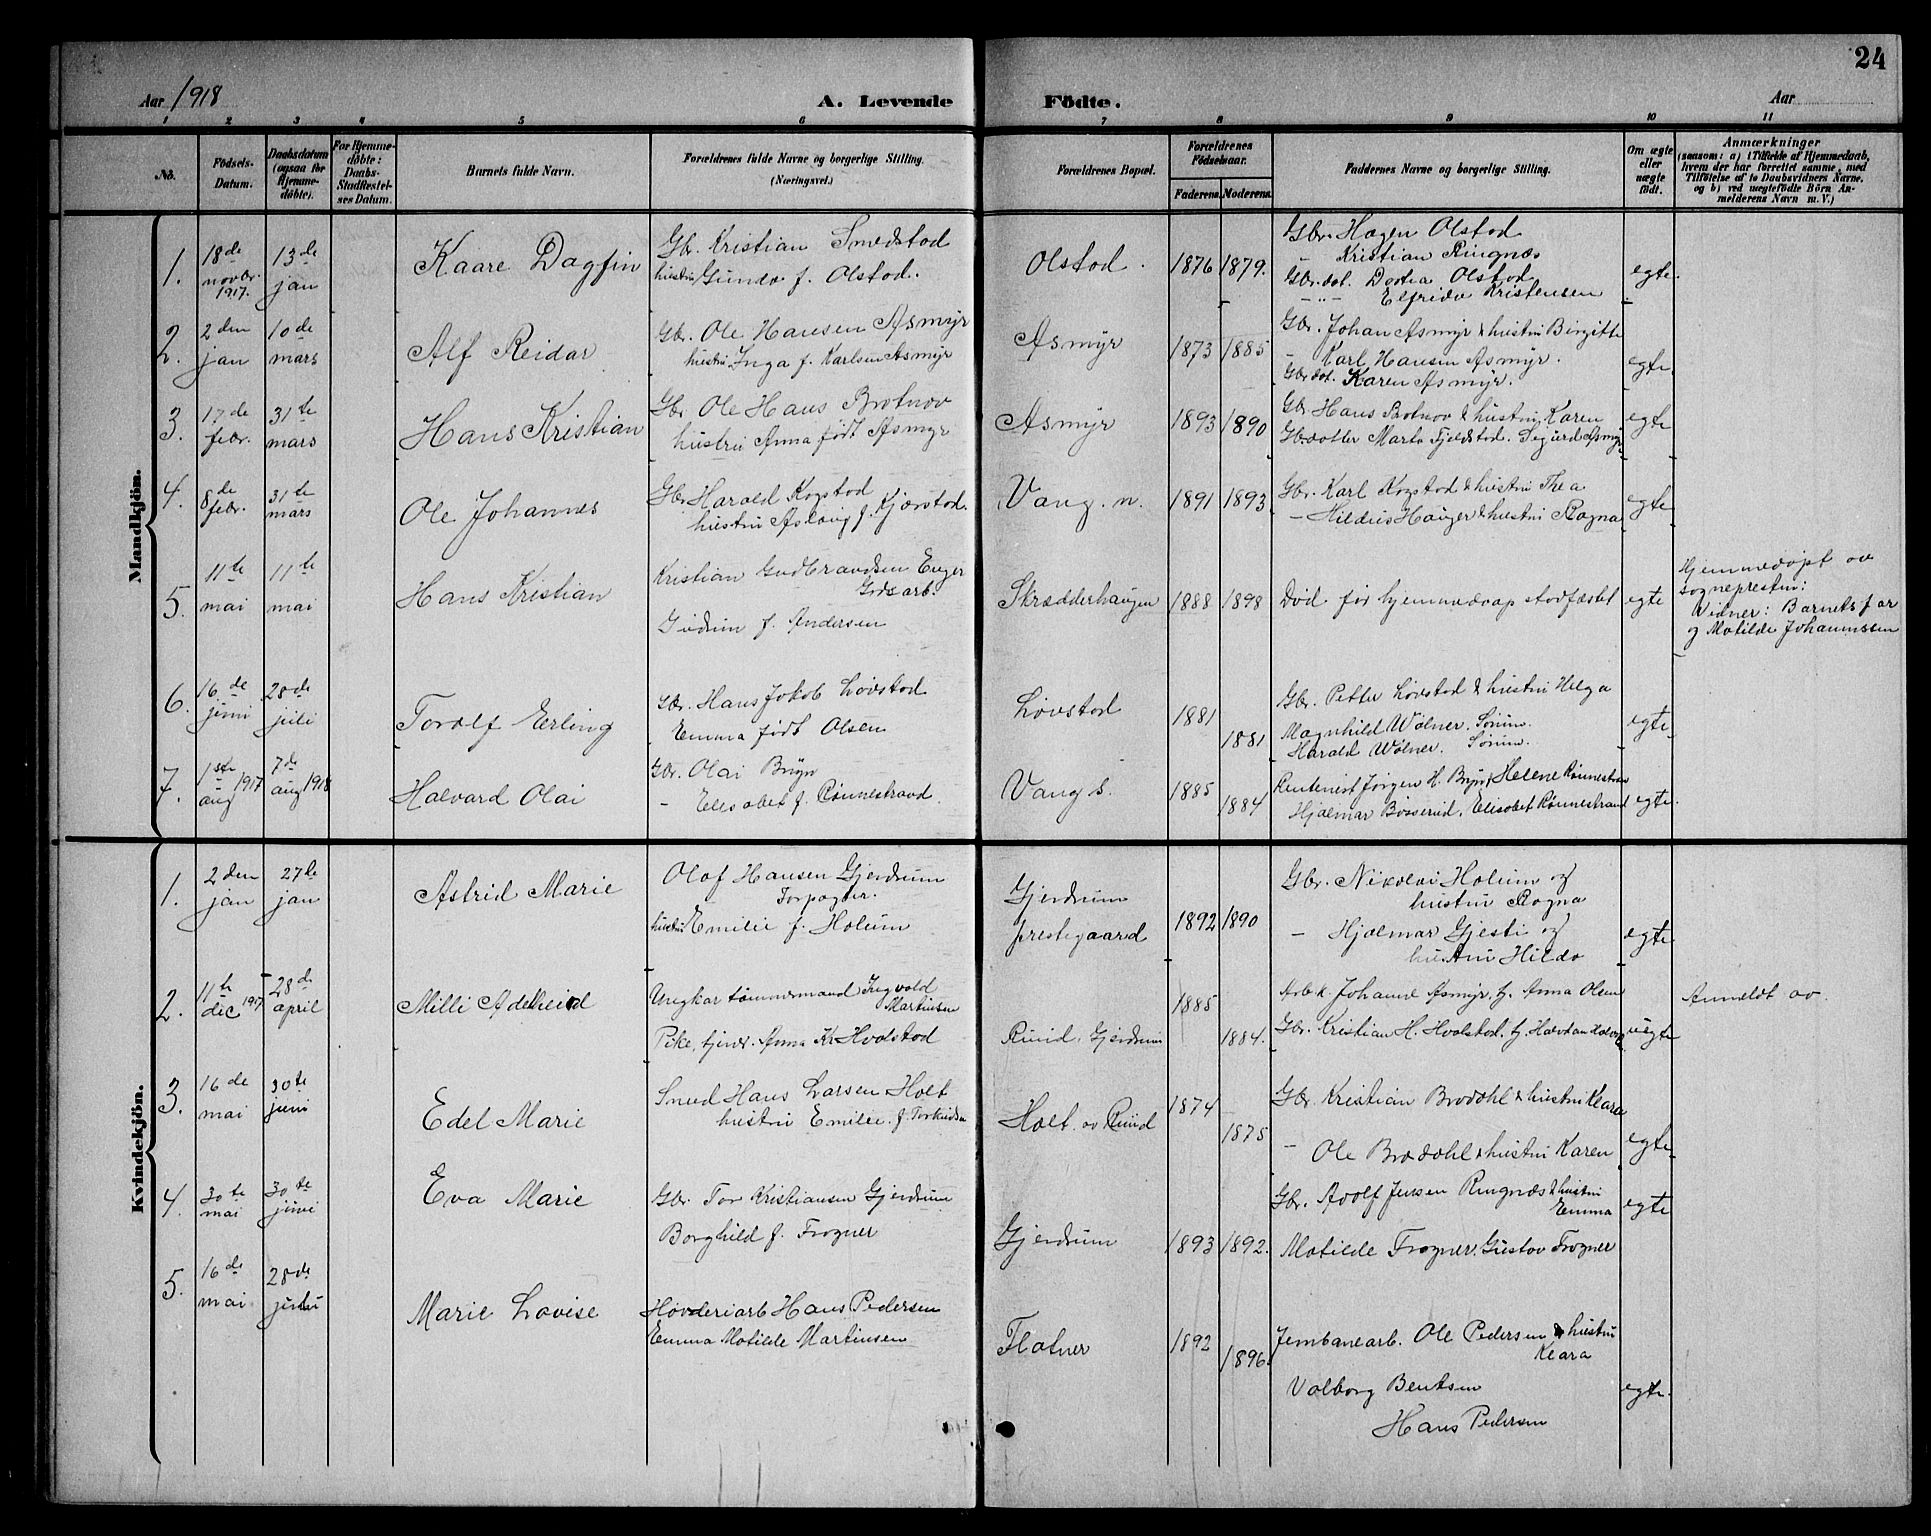 24
Aar 1918
A. Levende Födte.
Aar
1 2 3 4 5 6 7 8 9 10 11
No.
Födsels-Datum.
Daabsdatum (ogsaa for Hjemme-döbte).
For Hjemme-döbte: Daabs-Stadfæstel-ses Datum.
Barnets fulde Navn.
Forældrenes fulde Navne og borgerlige Stilling. (Næringsvei.)
Forældrenes Bopæl.
Forældrenes Födselsaar.
Faderens. Moderens.
Faddernes Navne og borgerlige Stilling.
Om ægte eller uægte födt.
Anmærkninger
(saasom: a) i Tilfælde af Hjemmedaab, hvem der har forrettet samme, med Tilföielse af to Daabsvidners Navne, og b) ved uægtefödte Börn An-melderens Navn m. V.)
Mandkjön.
1. 18de novbr. 1917. 13de jan Kaare Dagfin
Gbr. Kristian Smedstad
hustru Gunda f. Olstad.
Olstad. 1876 1879.
Gbr. Hagen Olstad
- Kristian Ringnæs
Gbr.dat. Dortea Olstad
-"- Elfrida Kristensen
egte.
2. 2den jan 10de mars Alf Reidar
Gbr. Ole Hansen Asmyr
hustru Inga f. Karlsen Asmyr
Asmyr 1873 1885
Gbr. Johan Asmyr & hustru Birgitte
- Karl Hansen Asmyr.
Gbr.dat. Karen Asmyr.
egte.
3. 17de febr. 31te mars Hans Kristian
Gbr. Ole Hans Brotnov
hustru Anna født Asmyr
Asmyr 1893 1890
Gbr Hans Brotnov & hustru Karen
Gbrdatter Marta Fjeldstad. Segurd Asmyr
egte
4. 8de febr. 31te mars Ole Johannes
Gbr. Harald Kogstad
hustru Aslaug f. Kjærstad.
Vang. n. 1891 1893
Gbr. Karl Kogstad & hustru Thea
- Hildius Hauger & hustru Ragna
egte
5. 11te mai 11te mai Hans Kristian
Kristian Gudbrandsen Enger
Grdsarb.
Gudrun f. Andersen
Skrædderhaugen 1888 1898
Død før hjemmedaap stadfæstet
egte
Hjemmedøpt av
sogneprestin:
Vidner: Barnets far
og Matilde Johannessen
6. 16de juni 28de juli Toralf Erling
Gbr. Hans Jakob Løvstad
Emma født Olsen
Løvstad 1881 1881
Gbr. Petter Løvstad & hustru Helga
Magnhild Wølner. Sørum.
Harald Wølner. Sørum.
egte.
7. 1ste aug 1917 7de aug 1918 Halvard Olai
Gbr. Olai Bryn
- Elisabet f. Rønnestrand.
Vang s. 1885 1884
Rentenist Jørgen H. Bryn, Helene Rønnestran
Hjalmar Bøsserud. Elisabet Rønnestrand
egte.
Kvindekjön.
1. 2den jan 27te jan Astrid Marie
Olaf Hansen Gjerdrum
Forpagter.
hustru Emilie f. Holum
Gjerdrum
prestegaard 1892 1890
Gbr. Nikolai Holum og
hustru Ragna
- Hjalmar Gjesti og
hustru Hilda
egte.
2. 11te dec 1917 28de april Milli Adelheid
Ungkar tømmermand Ingvald
Martinsen
Pike, tjener. Anna Kr Hvalstad
Ruud, Gjerdrum 1885 1884.
Arbk. Johanne Asmyr, tj. Anna Olsen
Gbr. Kristian H. Hvalstad. tj. Halvdan
uegte
Anmeldt av.
3. 16de mai 30te juni Edel Marie
Smed Hans Larsen Holt
hustru Emilie. f. Torkildsen
Holt. av Ruud 1874 1875
Gbr. Kristian Brodahl & hustru Klara
- Ole Brodahl & hustru Karen
egte.
4. 30te mai 30te juni Eva Marie
Gbr Tor Kristiansen Gjerdrum
Borghild f. Frogner
Gjerdrum 1893 1892.
Gbr. Adolf Jensen Ringnæs & hustru
Emma
Matilde Frogner. Gustav Frogner
egte
5. 16de mai 28de juli Marie Lovise
Havderiarb Hans Pedersen
Emma Matilde Martinsen
Flatner 1892 1896.
Jernbanearb. Ole Pedersen & hustru
Klara
Valborg Bentsen
Hans Pedersen
egte.